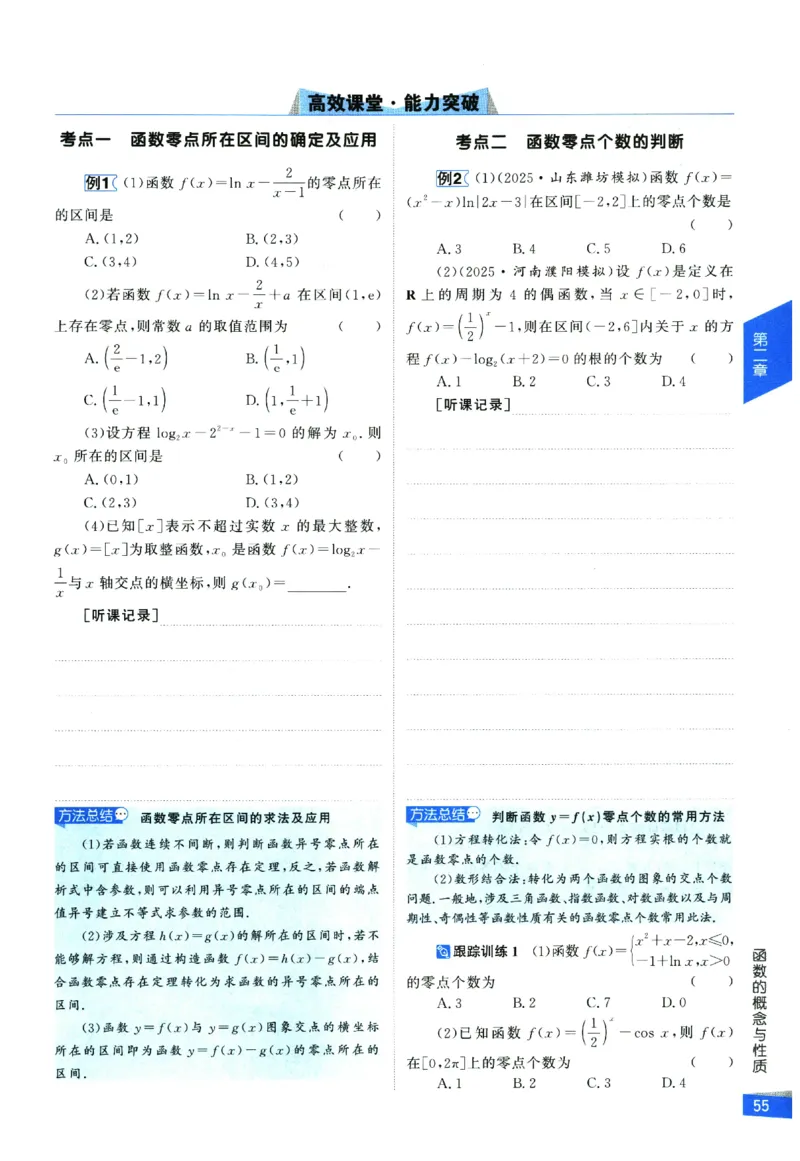 高效课堂·能力突破
考点一 函数零点所在区间的确定及应用
例1 (1)函数 f(x)=ln x-2/(x-1)的零点所在
的区间是 ( )
A.(1,2) B.(2,3)
C.(3,4) D.(4,5)
(2)若函数 f(x)=ln x-2/x+a 在区间(1,e)
上存在零点,则常数 a 的取值范围为 ( )
A.(2/e-1,2) B.(1/e,1)
C.(1/e-1,1) D.(1,1/e+1)
(3)设方程 log₂x-2^(2-x)-1=0 的解为 x₀.则
x₀ 所在的区间是 ( )
A.(0,1) B.(1,2)
C.(2,3) D.(3,4)
(4)已知[x]表示不超过实数 x 的最大整数,
g(x)=[x]为取整函数,x₀ 是函数 f(x)=log₂x-
1/x与x 轴交点的横坐标,则 g(x₀)=________.
[听课记录]
方法总结 函数零点所在区间的求法及应用
(1)若函数连续不间断,则判断函数异号零点所在
的区间可直接使用函数零点存在定理,反之,若函数解
析式中含参数,则可以利用异号零点所在的区间的端点
值异号建立不等式求参数的范围.
(2)涉及方程h(x)=g(x)的解所在的区间时,若不
能够解方程,则通过构造函数 f(x)=h(x)-g(x),结
合函数零点存在定理转化为求函数的异号零点所在的
区间.
(3)函数 y=f(x)与 y=g(x)图象交点的横坐标
所在的区间即为函数 y=f(x)-g(x)的零点所在的
区间.
考点二 函数零点个数的判断
例2 (1)(2025·山东潍坊模拟)函数 f(x)=
(x²-x)ln|2x-3|在区间[-2,2]上的零点个数是
( )
A.3 B.4 C.5 D.6
(2)(2025·河南濮阳模拟)设 f(x)是定义在
R 上的周期为 4 的偶函数,当 x∈[-2,0]时,
f(x)=(1/2)^x-1,则在区间(-2,6]内关于 x 的方
程f(x)-log₂(x+2)=0 的根的个数为 ( )
A.1 B.2 C.3 D.4
[听课记录]
方法总结 判断函数 y=f(x)零点个数的常用方法
(1)方程转化法:令 f(x)=0,则方程实根的个数就
是函数零点的个数.
(2)数形结合法:转化为两个函数的图象的交点个数
问题.一般地,涉及三角函数、指数函数、对数函数以及与周
期性、奇偶性等函数性质有关的函数零点个数常用此法.
跟踪训练1 (1)函数 f(x)={x²+x-2,x≤0,
-1+ln x,x>0
的零点个数为 ( )
A.3 B.2 C.7 D.0
(2)已知函数 f(x)=(1/2)^x-cos x,则 f(x)
在[0,2π]上的零点个数为 ( )
A.1 B.2 C.3 D.4
第二章
函数的概念与性质
55